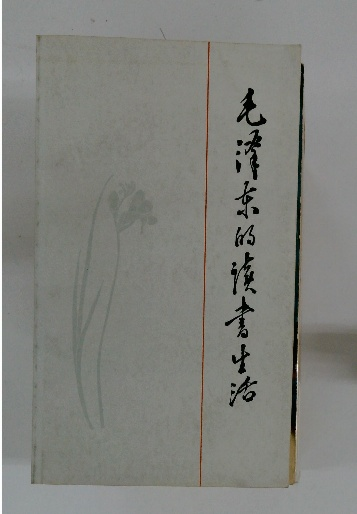 毛泽东的读书生活